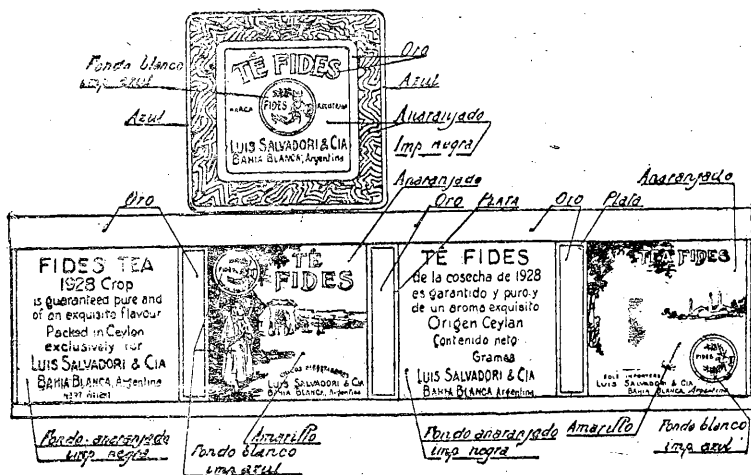 Oro
Fondo blanco
imp azul
TÉ FIDES
Azul
FIDES
MARCA REGISTRADA
Azul
Anaranjado
Imp negra
LUIS SALVADORI & CIA
BAHIA BLANCA, Argentina
Anaranjado
Anaranjado
Oro
Oro
PLATA
Oro
Plata
FIDES TEA
1928 Crop
is guaranteed pure and
of an exquisite flavour
Packed in Ceylon
exclusively for
LUIS SALVADORI & CIA
BAHIA BLANCA, Argentina
TÉ
FIDES
LUIS SALVADORI & CIA
BAHIA BLANCA, Argentina
TÉ FIDES
de la cosecha de 1928
es garantido y puro y
de un aroma exquisito
Origen Ceylan
Contenido neto
Gramos
LUIS SALVADORI & CIA
BAHIA BLANCA Argentina
TEA FIDES
FIDES
SOLE IMPORTERS
LUIS SALVADORI & CIA
BAHIA BLANCA, Argentina
Fondo anaranjado
imp negra
Fondo blanco
imp azul
Amarillo
Fondo anaranjado
imp negra
Amarillo
Fondo blanco
imp azul